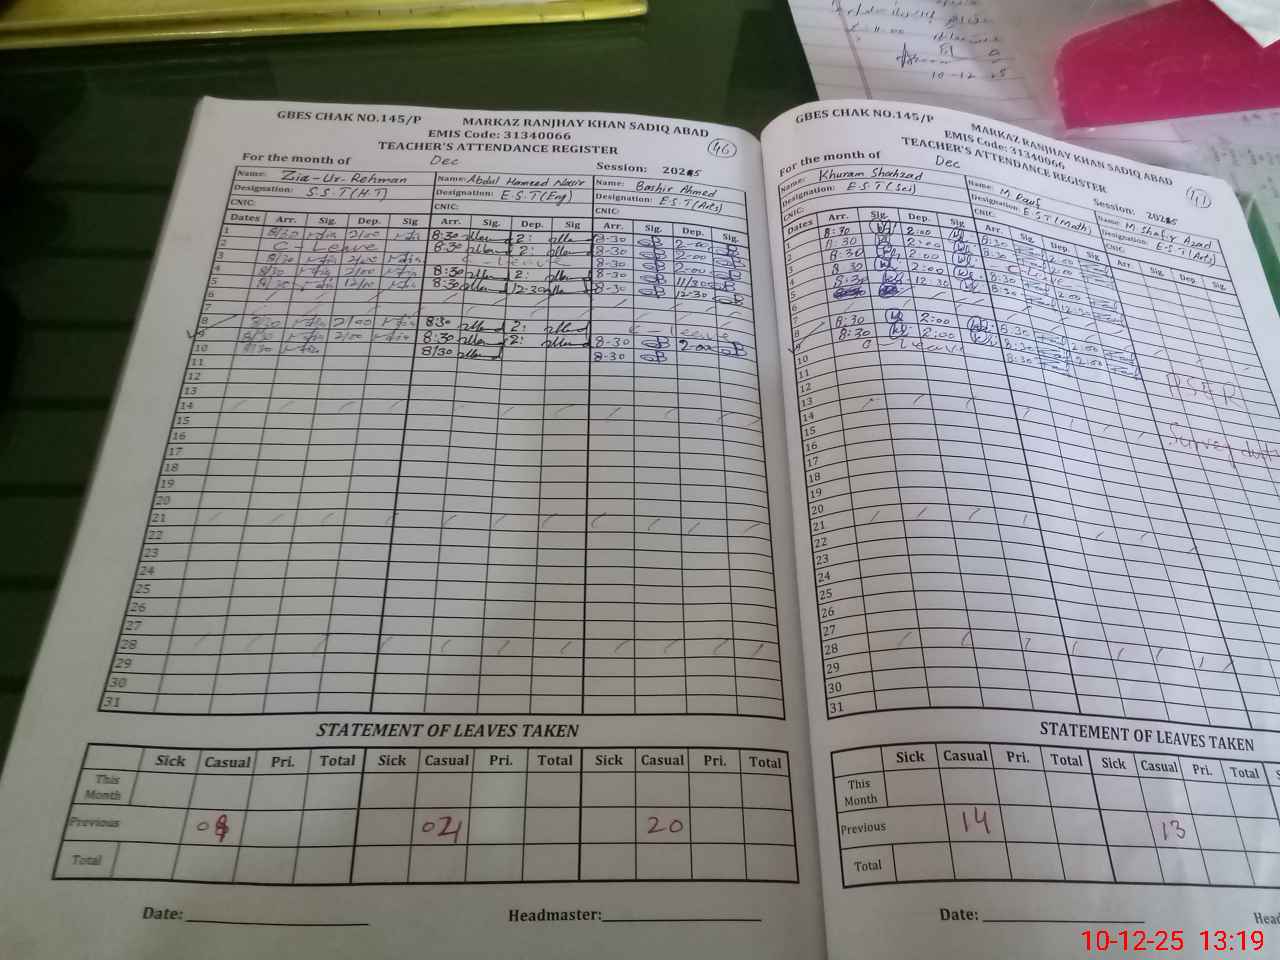 11:00
10-12-25
GBES CHAK NO.145/P MARKAZ RANJHAY KHAN SADIQ ABAD
EMIS Code: 31340066
TEACHER'S ATTENDANCE REGISTER
46
For the month of Dec Session: 2025
Name: Zia-Ur-Rehman Name: Abdul Hameed Nasir Name: Bashir Ahmed
Designation: S.S.T(H.T) Designation: E.S.T(Eng) Designation: E.S.T(Arts)
CNIC: CNIC: CNIC:
Dates Arr. Sig. Dep. Sig Arr. Sig. Dep. Sig. Arr. Sig. Dep. Sig.
1 8/30 2/00 8:30 2: 8-30 2-00
2 C-Leave 8:30 2: 8-30 2-00
3 8/30 2/00 C-Leave 8-30 2-00
4 8/30 2/00 8:30 2: 8-30 11/300
5 8/30 12/00 8:30 12-30 8-30 12-30
6
7
8 8/30 2/00 830 2: C-leave
9 8/30 2/00 8:30 2: 8-30 2-00
10 8/30 8/30 8-30
11
12
13
14
15
16
17
18
19
20
21
22
23
24
25
26
27
28
29
30
31
STATEMENT OF LEAVES TAKEN
Sick Casual Pri. Total Sick Casual Pri. Total Sick Casual Pri. Total
This Month
Previous 20
Total
Date: Headmaster:
GBES CHAK NO.145/P MARKAZ RANJHAY KHAN SADIQ ABAD
EMIS Code: 31340066
TEACHER'S ATTENDANCE REGISTER
For the month of Dec Session: 2025
Name: Khuram Shahzad Name: M. Rauf Name: M. Shafiq Azad
Designation: E.S.T(Sci) Designation: E.S.T(Math) Designation: E.S.T(Arts)
CNIC: CNIC: CNIC:
Dates Arr. Sig. Dep. Sig Arr. Sig. Dep. Sig Arr. Sig. Dep. Sig.
1 8:30 2:00 8:30 2:00
2 8:30 2:00 8:30 2:00
3 8:30 2:00 C-Leave
4 8:30 2:00 8:30 2:00
5 8:30 12:30 8:30 12:30
6
7
8 8:30 2:00 8:30 2:00
9 8:30 2:00 8:30 2:00
10 C-Leave 8:30
11
12
13
14
15
16
17
18
19
20
21
22
23
24
25
26
27
28
29
30
31
PSER
Survey duty
STATEMENT OF LEAVES TAKEN
Sick Casual Pri. Total Sick Casual Pri. Total
This Month
Previous 14 13
Total
Date:
10-12-25 13:19